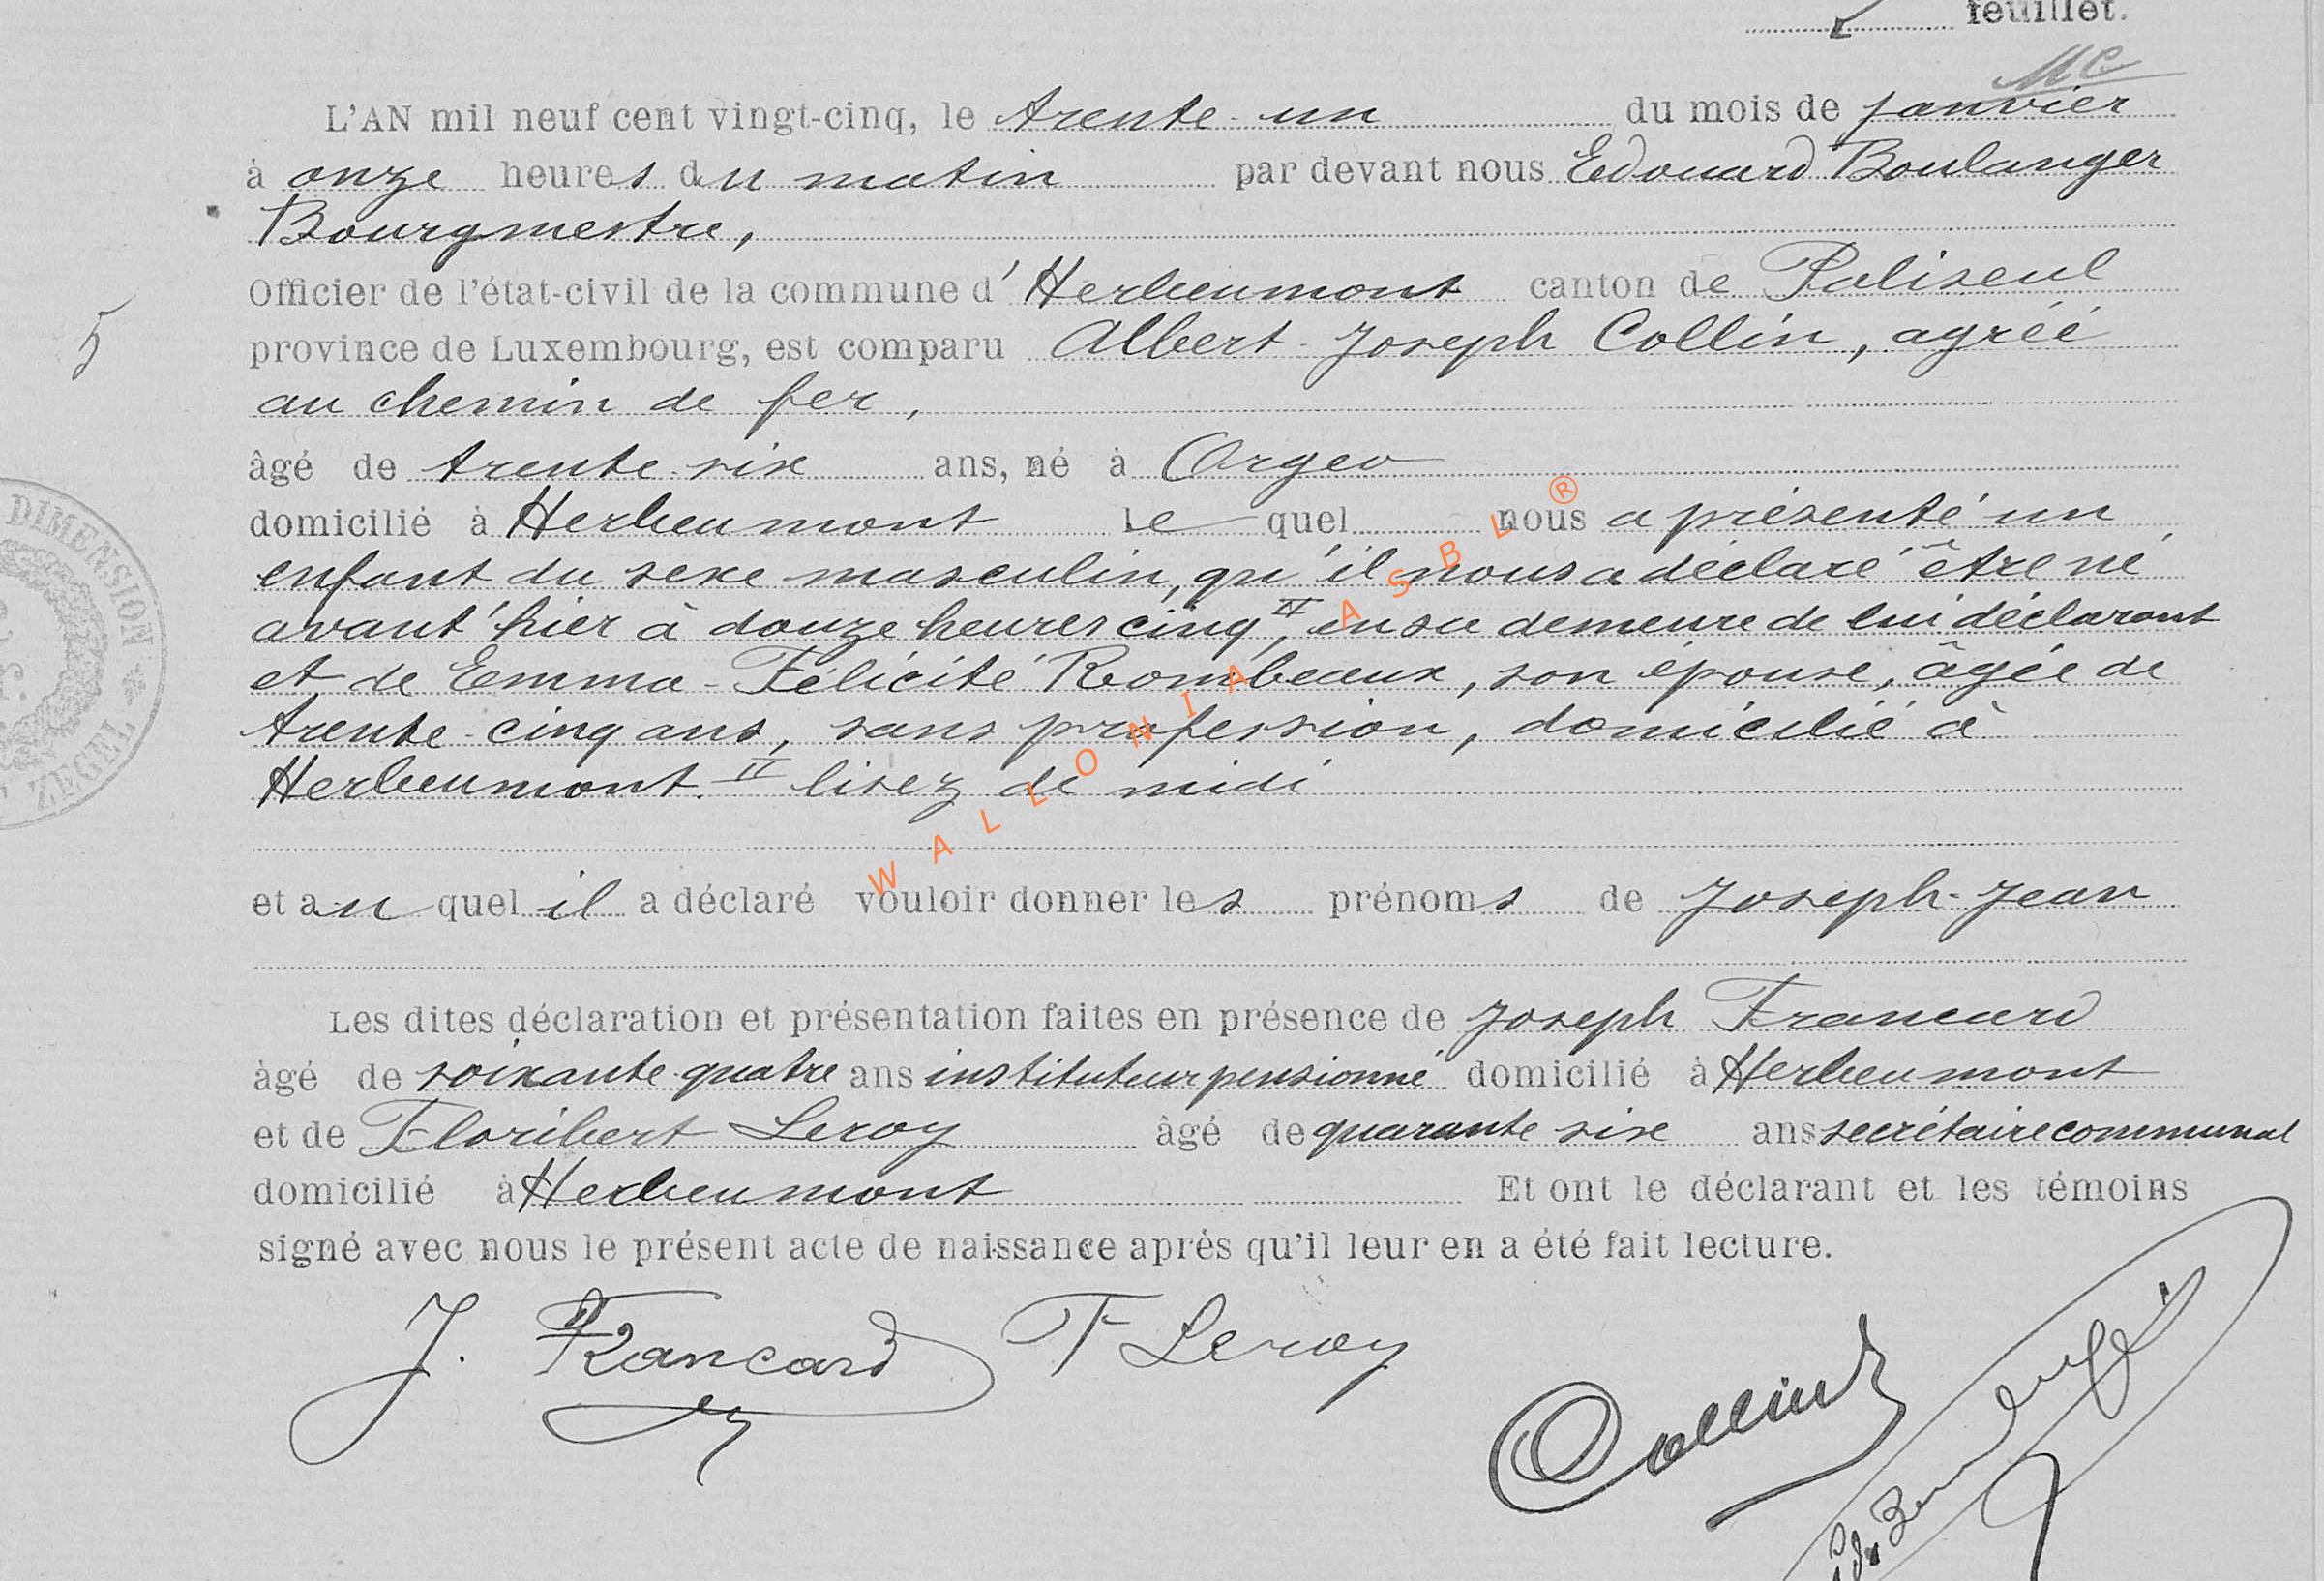 feuillet.
Mc
L'AN mil neuf cent vingt-cinq, le trente-un du mois de janvier
à onze heures du matin par devant nous Edouard Boulanger
Bourgmestre,
Officier de l'état-civil de la commune d'Herbeumont canton de Paliseul
5
province de Luxembourg, est comparu Albert-Joseph Collin, agréé
au chemin de fer,
âgé de trente-six ans, né à Orgeo
domicilié à Herbeumont lequel nous a présenté un
enfant du sexe masculin, qu'il nous a déclaré être né
avant'hier à douze heures cinq II, en sa demeure de lui déclarant
et de Emma-Félicité Rombeaux, son épouse, âgée de
trente-cinq ans, sans profession, domicilié à
Herbeumont. II lisez de midi
et au quel il a déclaré vouloir donner les prénoms de Joseph-Jean
Les dites déclaration et présentation faites en présence de Joseph Francard
âgé de soixante-quatre ans instituteur pensionné domicilié à Herbeumont
et de Floribert Leroy âgé de quarante six ans secrétaire communal
domicilié à Herbeumont Et ont le déclarant et les témoins
signé avec nous le présent acte de naissance après qu'il leur en a été fait lecture.
J. Francard F Leroy
Collin
DIMENSION
ZEGEL
WALLONIA ASBL ®